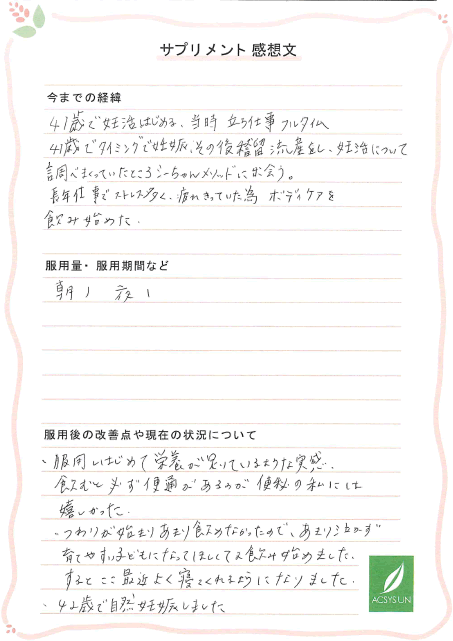 サプリメント 感想文
今までの経緯
41歳で妊活はじめる、当時 立ち仕事 フルタイム
41歳でタイミングで妊娠、その後稽留流産をし、妊活について
調べまくっていたところ シーちゃんメソッドに出会う。
長年仕事でストレス多く、疲れきっていた為 ボディケアを
飲み始めた.
服用量・服用期間など
朝1 夜1
服用後の改善点や現在の状況について
、服用しはじめて栄養が足りているような実感.
飲むと必ず便通があるのが便秘の私には
嬉しかった.
・つわりが始まりあまり飲めなかったので、あまり泣かず
育てやすい子どもになってほしくて2飲み始めました.
すると ここ最近よく寝てくれるようになりました.
、42歳で自然妊娠しました
ACSYSLIN